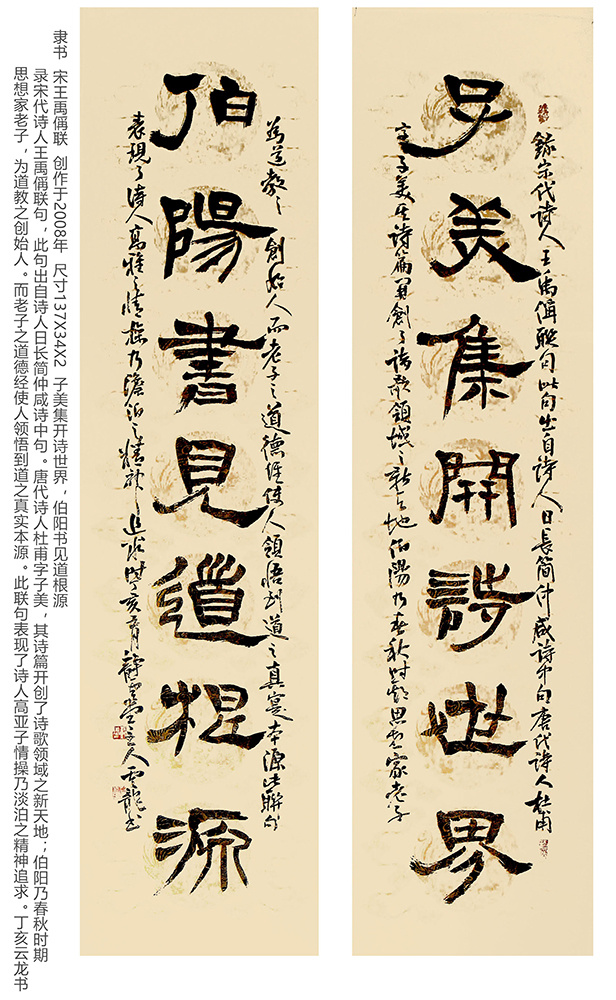 錄宋代诗人王禹偁联句此句出自诗人日長简仲咸诗中句唐代诗人杜甫
子美集開詩世界
字子美其诗篇開創了诗歌領域之新天地伯陽乃春秋时期思想家老子
為道教之創始人而老子之道德經使人領悟到道之真實本源此聯句
伯陽書見道根源
表現了诗人高雅之情操乃澹泊之精神追求时丁亥月堂主人雲龍书
隶书 宋王禹偁联 创作于2008年 尺寸137X34X2 子美集开诗世界，伯阳书见道根源
录宋代诗人王禹偁联句，此句出自诗人日长简仲咸诗中句。唐代诗人杜甫字子美，其诗篇开创了诗歌领域之新天地；伯阳乃春秋时期
思想家老子，为道教之创始人。而老子之道德经使人领悟到道之真实本源。此联句表现了诗人高亚子情操乃淡泊之精神追求。丁亥云龙书